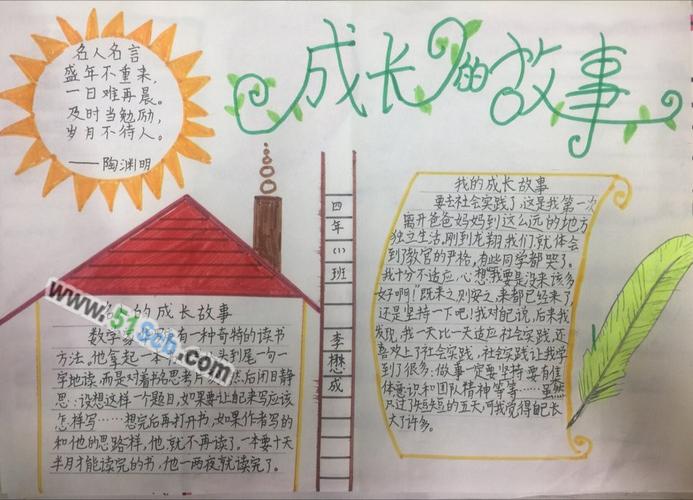 成长的故事
名人名言
盛年不重来，
一日难再晨。
及时当勉励，
岁月不待人。
——陶渊明
四年(1)班 李懋成
的成长故事
数学 有一种奇特的读书
方法，他拿起一本 头到尾一句一
字地读，而是对着书名思考片 然后闭目静
思：设想这样一个题目，如果要让自己来写应该
怎样写……想完后再打开书，如果作者写的
和他的思路一样，他就不再读了。一本要十天
半月才能读完的书，他一两夜就读完了。
www.51Scb.com
我的成长故事
要去社会实践了，这是我第一次
离开爸爸妈妈到这么远的地方
独立生活，刚到龙翔我们就体会
到了教官的严格，有些同学都哭了。
我十分不适应，心想：我要是没来该多
好啊！"既来之，则安之，来都已经来了，
还是坚持一下吧！我对自己说，后来我
发现，我一天比一天适应社会实践，还
喜欢上了社会实践，社会实践让我学
到了很多：做事一定要坚持 要有集
体意识和团队精神等等……虽然
只过了短短的五天，可我觉得自己长
大了许多。